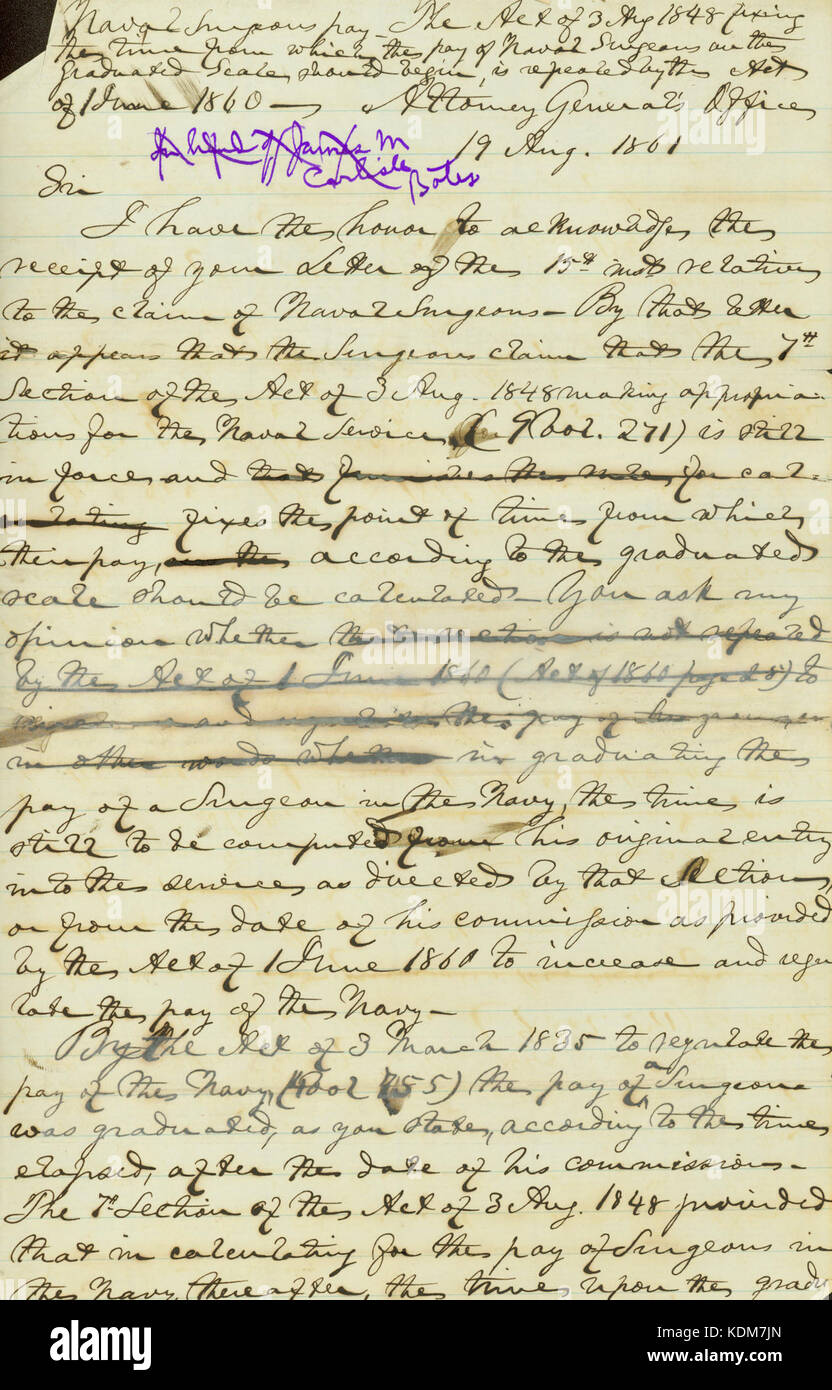 Naval Surgeons pay - The Act of 3 Aug 1848 fixing
the time from which the pay of Naval Surgeons on the
graduated Scale, should begin, is repealed by the Act
of 1 June 1860 - Attorney General's Office
19 Aug. 1861
of James M
Carlisle
Bates
Sir
I have the honor to acknowledge the
receipt of your Letter of the 15th inst relative
to the claim of Naval Surgeons - By that letter
it appears that the Surgeons claim that the 7th
Section of the Act of 3 Aug. 1848 making appropria-
tions for the Naval Service, (9 vol. 271) is still
in force and that furnishes the rule, for cal-
culating fixes the point of time from which
their pay, on the according to the graduated
scale should be calculated - You ask my
opinion whether that section is not repealed
by the Act of 1 June 1860 (Act of 1860 page 25) to
and regulate the pay of the
in other words whether in graduating the
pay of a Surgeon in the Navy, the time is
still to be computed from his original entry
into the service, as directed by that Section,
or from the date of his commission as provided
by the Act of 1 June 1860 to increase and regu
late the pay of the Navy -
By the Act of 3 March 1835 to regulate the
pay of the Navy, (4 vol 755) the pay of a Surgeon
was graduated, as you state, according to the time
elapsed, after the date of his commission -
The 7th Section of the Act of 3 Aug. 1848 provided
that in calculating for the pay of Surgeons in
the Navy thereafter, the time upon the gradu
alamy
Image ID: KDM7JN
www.alamy.com